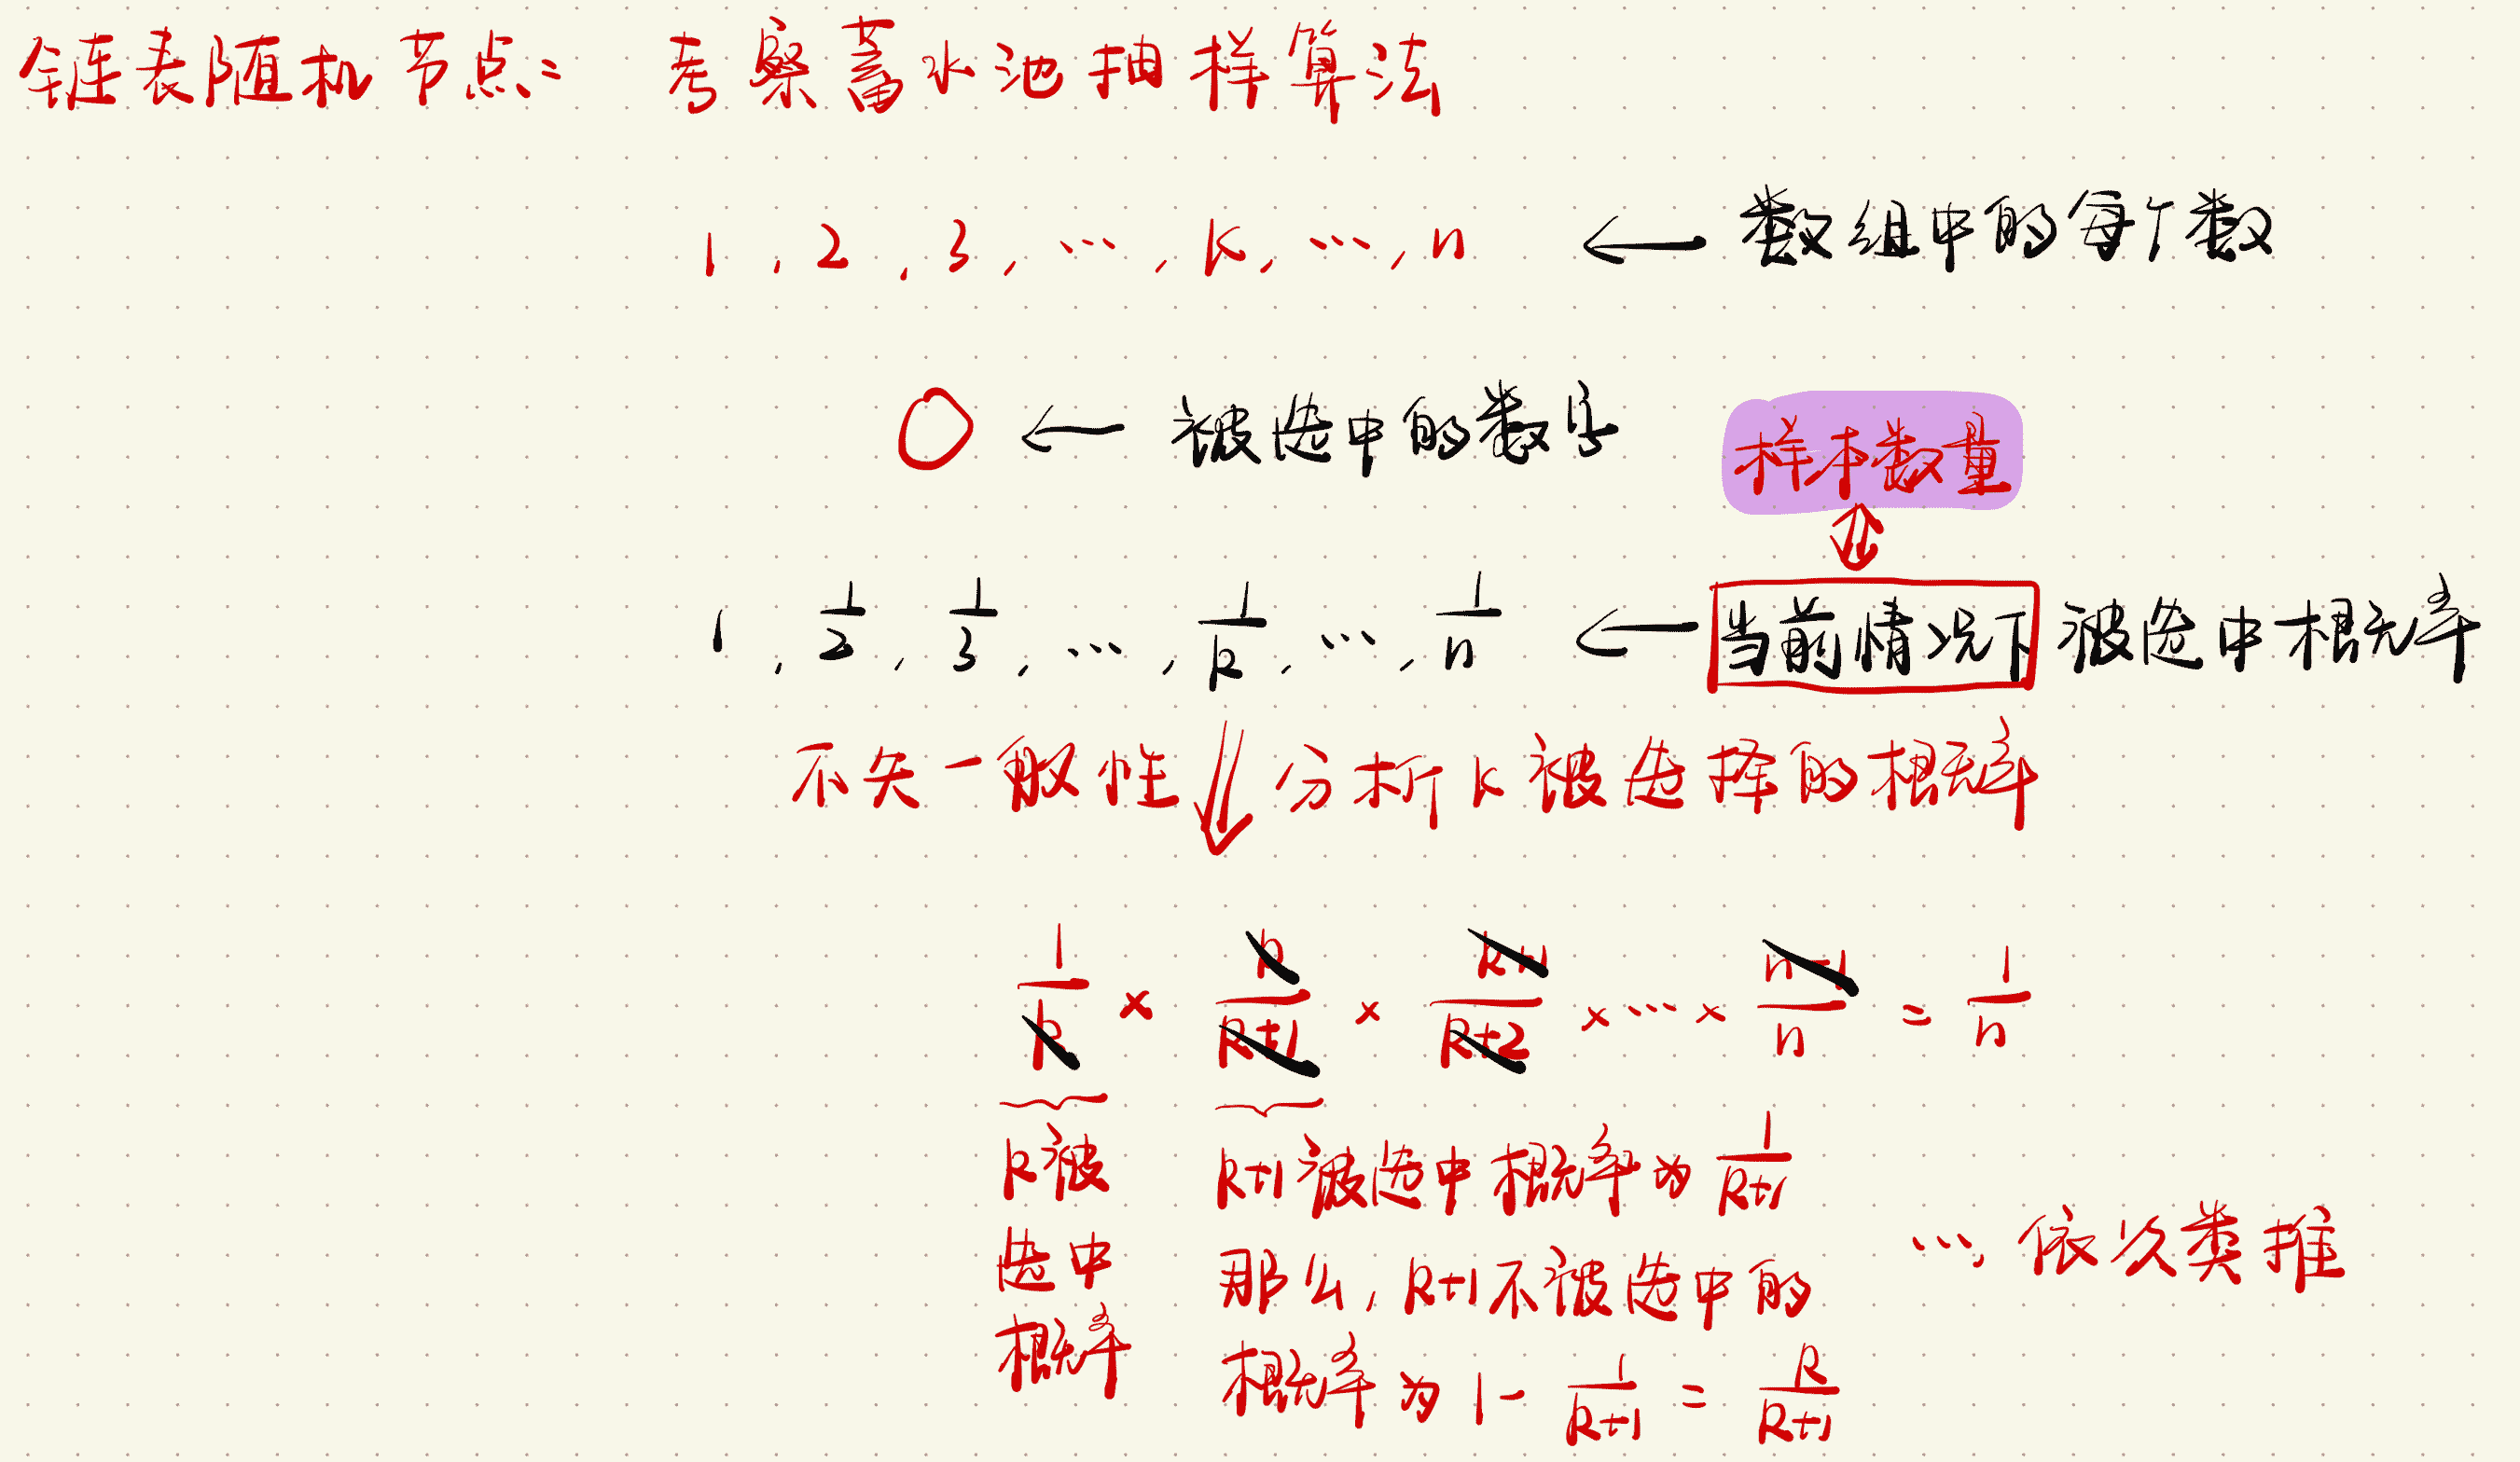 链表随机节点: 考察蓄水池抽样算法
1, 2, 3, ..., k, ..., n ← 数组中的每个数
← 被选中的数字
样本数量
1, 1/2, 1/3, ..., 1/k, ..., 1/n ← 当前情况下 被选中概率
不失一般性 分析k被选择的概率
1/k × k/k+1 × k+1/k+2 × ... × n-1/n = 1/n
k被选中概率
k+1被选中概率为 1/k+1
那么, k+1不被选中的
概率为 1 - 1/k+1 = k/k+1
..., 依次类推